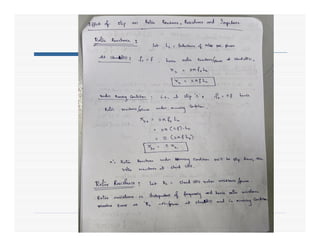 Effect of slip on Rotor Reactance, Resistance and Impedance
Rotor Reactance :
Let L₂ = Inductance of rotor per phase
At standstill : fr = f , hence rotor reactance/phase at standstill,
X₂ = 2πf L₂
X₂ = 2πf L₂
Under Running Condition : i.e., at slip 's', fr = sf hence
Rotor reactance/phase under running condition,
X₂r = 2π fr L₂
= 2π (sf) L₂
= s (2πf L₂)
X₂r = s X₂
∴ Rotor Reactance under running condition will be slip times the
rotor reactance at stand still.
Rotor Resistance : Let R₂ = Stand still rotor resistance/phase
Rotor resistance is independent of frequency and hence rotor resistance
remains same at R₂ ohms/phase at standstill and in running condition